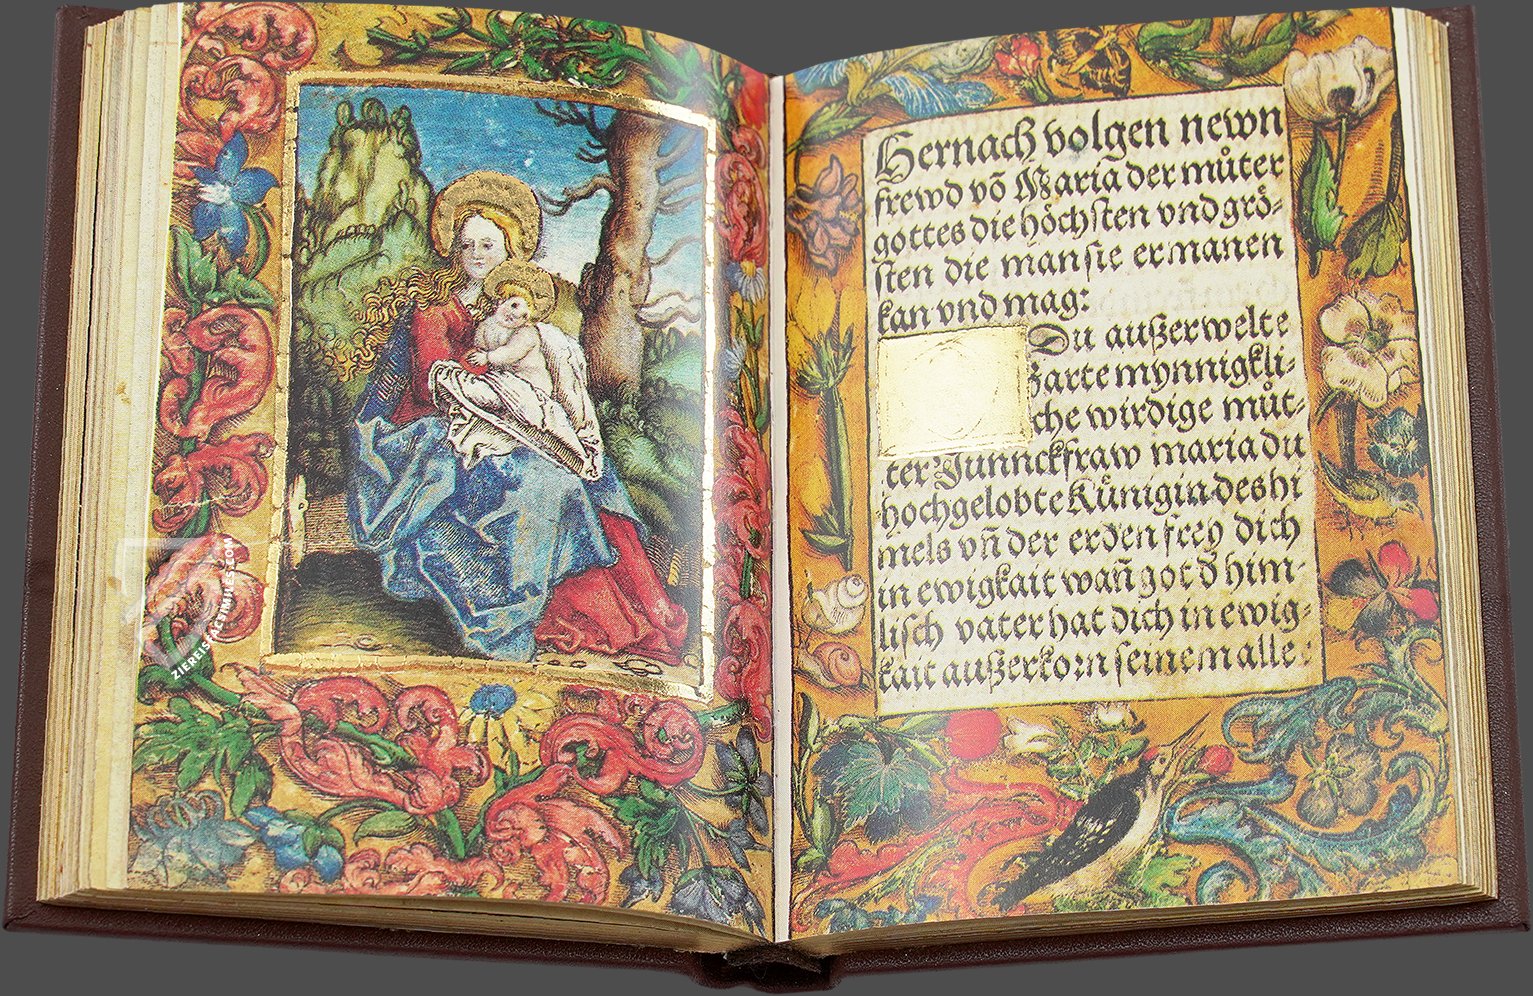 ZIEREISFACSIMILES.COM
Hernach volgen newn
frewd võ Maria der můter
gottes die höchsten vnd grö⸗
sten die man sie ermanen
kan vnd mag:
Du außerwelte
zarte mynnigkli⸗
che wirdige můt⸗
ter Junnckfraw maria du
hochgelobte Kůnigin des hi
mels vñ der erden frey dich
in ewigkait wañ got d̄ him⸗
lisch vater hat dich in ewig⸗
kait außerkorn seinem alle